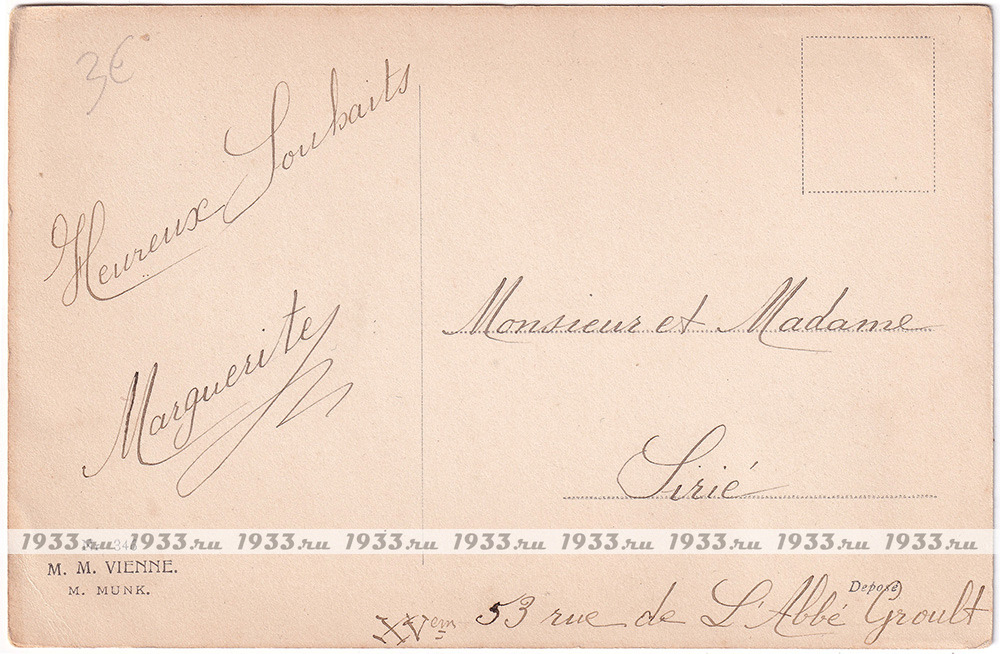 3€
Heureux Souhaits
Marguerite
Monsieur et Madame
Sirié
1933.ru 1933.ru 1933.ru 1933.ru 1933.ru 1933.ru 1933.ru 1933.ru 1933.ru
M. M. VIENNE.
M. MUNK.
Déposé
XVem 53 rue de L'Abbé Groult